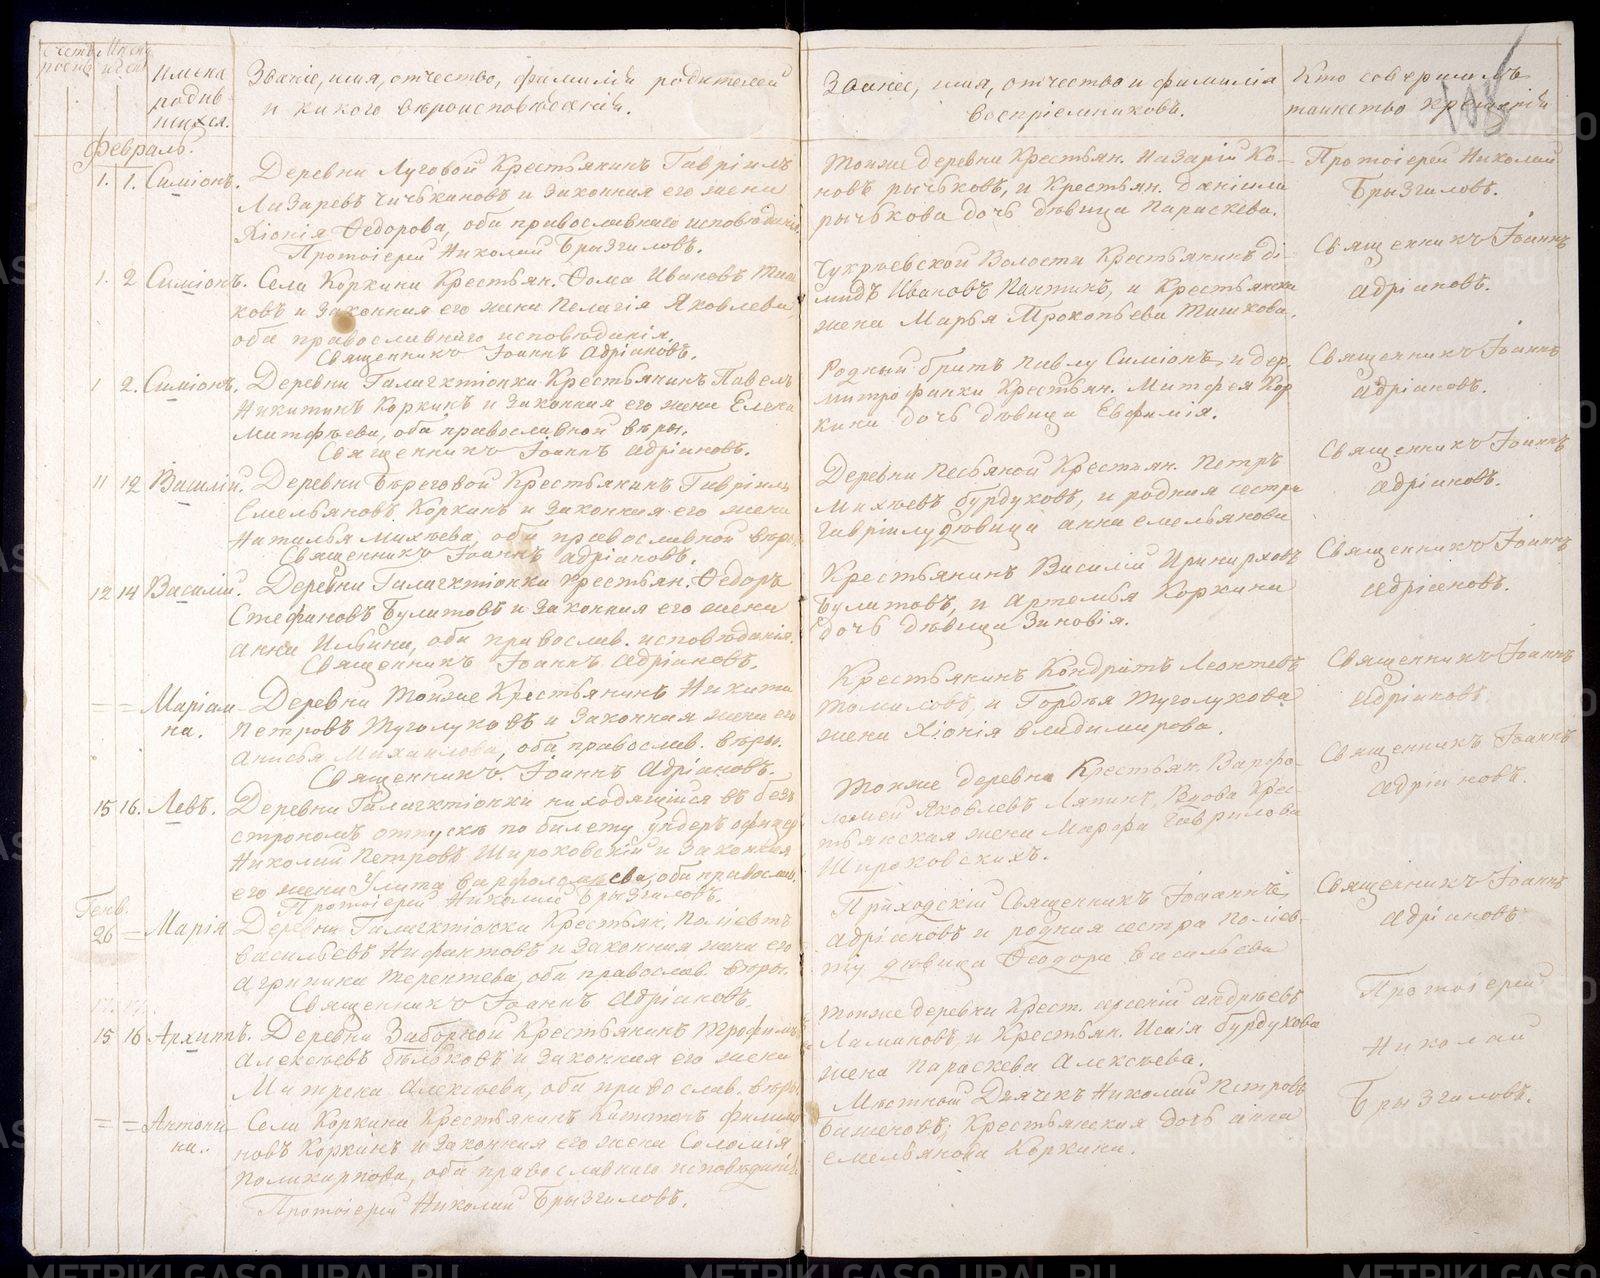 Счетъ родив.
Мѣсяцъ и день
Имена родив шихся.
Званіе, имя, отчество, фамилія родителей
и какого вѣроисповѣданія.
Званіе, имя, отчество и фамилія
воспріемниковъ.
Кто совершалъ
таинство крещенія
Февраль.
1. 1. Симіонъ. Деревни Луговой Крестьянинъ Гавріилъ
Лазаревъ Чичкановъ и законная его жена
Хіонія Ѳедорова, оба православнаго исповѣданія.
Протоіерей Николай Брызгаловъ.
Тойже деревни Крестьян. Назарій Ко-
новъ рычковъ, и Крестьян. даніила
рычкова дочь дѣвица Параскева.
Протоіерей Николай
Брызгаловъ.
1. 2 Симіонъ. Села Коркина Крестьян. Ѳома Ивановъ Тиш
ковъ и законная его жена Пелагія Яковлева,
оба православнаго исповѣданія.
Священникъ Іоаннъ Адріановъ.
Чукреевской Волости Крестьянинъ Ді-
мидъ Ивановъ Пантинъ, и Крестьянска
жена Марья Прокопьева Тишкова.
Священникъ Іоаннъ
Адріановъ.
1 2. Симіонъ. Деревни Галагхтіонки Крестьянинъ Павелъ
Никитинъ Коркинъ и законная его жена Елена
Матфѣева, оба православной вѣры.
Священникъ Іоаннъ Адріановъ.
Родный братъ Павлу Симіонъ, и дер.
митрофанки Крестьян. Матфея Кор
кина дочь дѣвица Евфимія.
Священникъ Іоаннъ
Адріановъ.
11 12 Василій. Деревни Береговой Крестьянинъ Гавріилъ
Емельяновъ Коркинъ и законная его жена
Наталья Михѣева, оба православной вѣры
Священникъ Іоаннъ Адріановъ.
Деревни Песьяной Крестьян. Петръ
Михѣевъ бурдуковъ, и родная сестра
Гавріилу дѣвица анна емельянова
Священникъ Іоаннъ
Адріановъ.
12 14 Василій. Деревни Галагхтіонки крестьян. Ѳедоръ
Стефановъ Булатовъ и законная его жена
анна Ильина, оба православ. исповѣданія.
Священникъ Іоаннъ Адріановъ.
Крестьянинъ Василій Иринарховъ
Булатовъ, и Артемья Коркина
дочь дѣвица Зиновія.
Священникъ Іоаннъ
Адріановъ.
= = Маріам- Деревни тойже Крестьянинъ Никита
на. Петровъ Туголуковъ и законная жена его
Анисья Михаилова, оба православ. вѣры.
Священникъ, Іоаннъ Адріановъ.
Крестьянинъ Кондратъ Леонтевъ
томиловъ, и Гордѣя Туголукова
жена Хіонія владимирова.
Священникъ Іоаннъ
Адріановъ
15 16. Левъ. Деревни Галагхтіонки находящійся въ без
строчномъ отпускѣ по билету ундеръ офицер
Николай Петровъ Широковскій и законная
его жена Улита варфоломѣева, оба православ.
Протоіерей Николай Брызгаловъ.
Тойже деревни Крестьян. Варфо-
ломей Яковлевъ Ляпинъ, Вдова Крес-
тьянская жена Марфа Гаврилова
Широковскихъ.
Священникъ Іоаннъ
Адріановъ.
Генв.
26 = Марія Деревни Галагхтіонки Крестьян. Поліевтъ
васильевъ Нифантовъ и законная жена его
Агрипина терентева, оба православ. вѣры.
Священникъ Іоаннъ Адріановъ.
Приходскій Священникъ Іоаннъ
Адріановъ и родная сестра Поліев-
ту дѣвица Ѳеодора васильева
Священникъ Іоаннъ
Адріановъ
15 16 Архипъ. Деревни Заборной Крестьянинъ трофимъ
Алексѣевъ бѣльковъ и законная его жена
Матрена Алексѣева, оба православ. вѣры.
тойже деревни Крест. арсеній андрѣевъ
Ламановъ, и Крестьян. Исаія бурдукова
жена Параскева Алексѣева.
Протоіерей
Николай
Брызгаловъ.
= = Антони- Села Коркина Крестьянинъ филимо
на. новъ Коркинъ и законная его жена Соломія
Поликарпова, оба православнаго исповѣданія.
Протоіерей Николай Брызгаловъ.
Мѣстной Дьячекъ Николай Петровъ
Баженовъ; Крестьянская дочь анна
емельянова Коркина.
METRIKI.GASO-URAL.RU